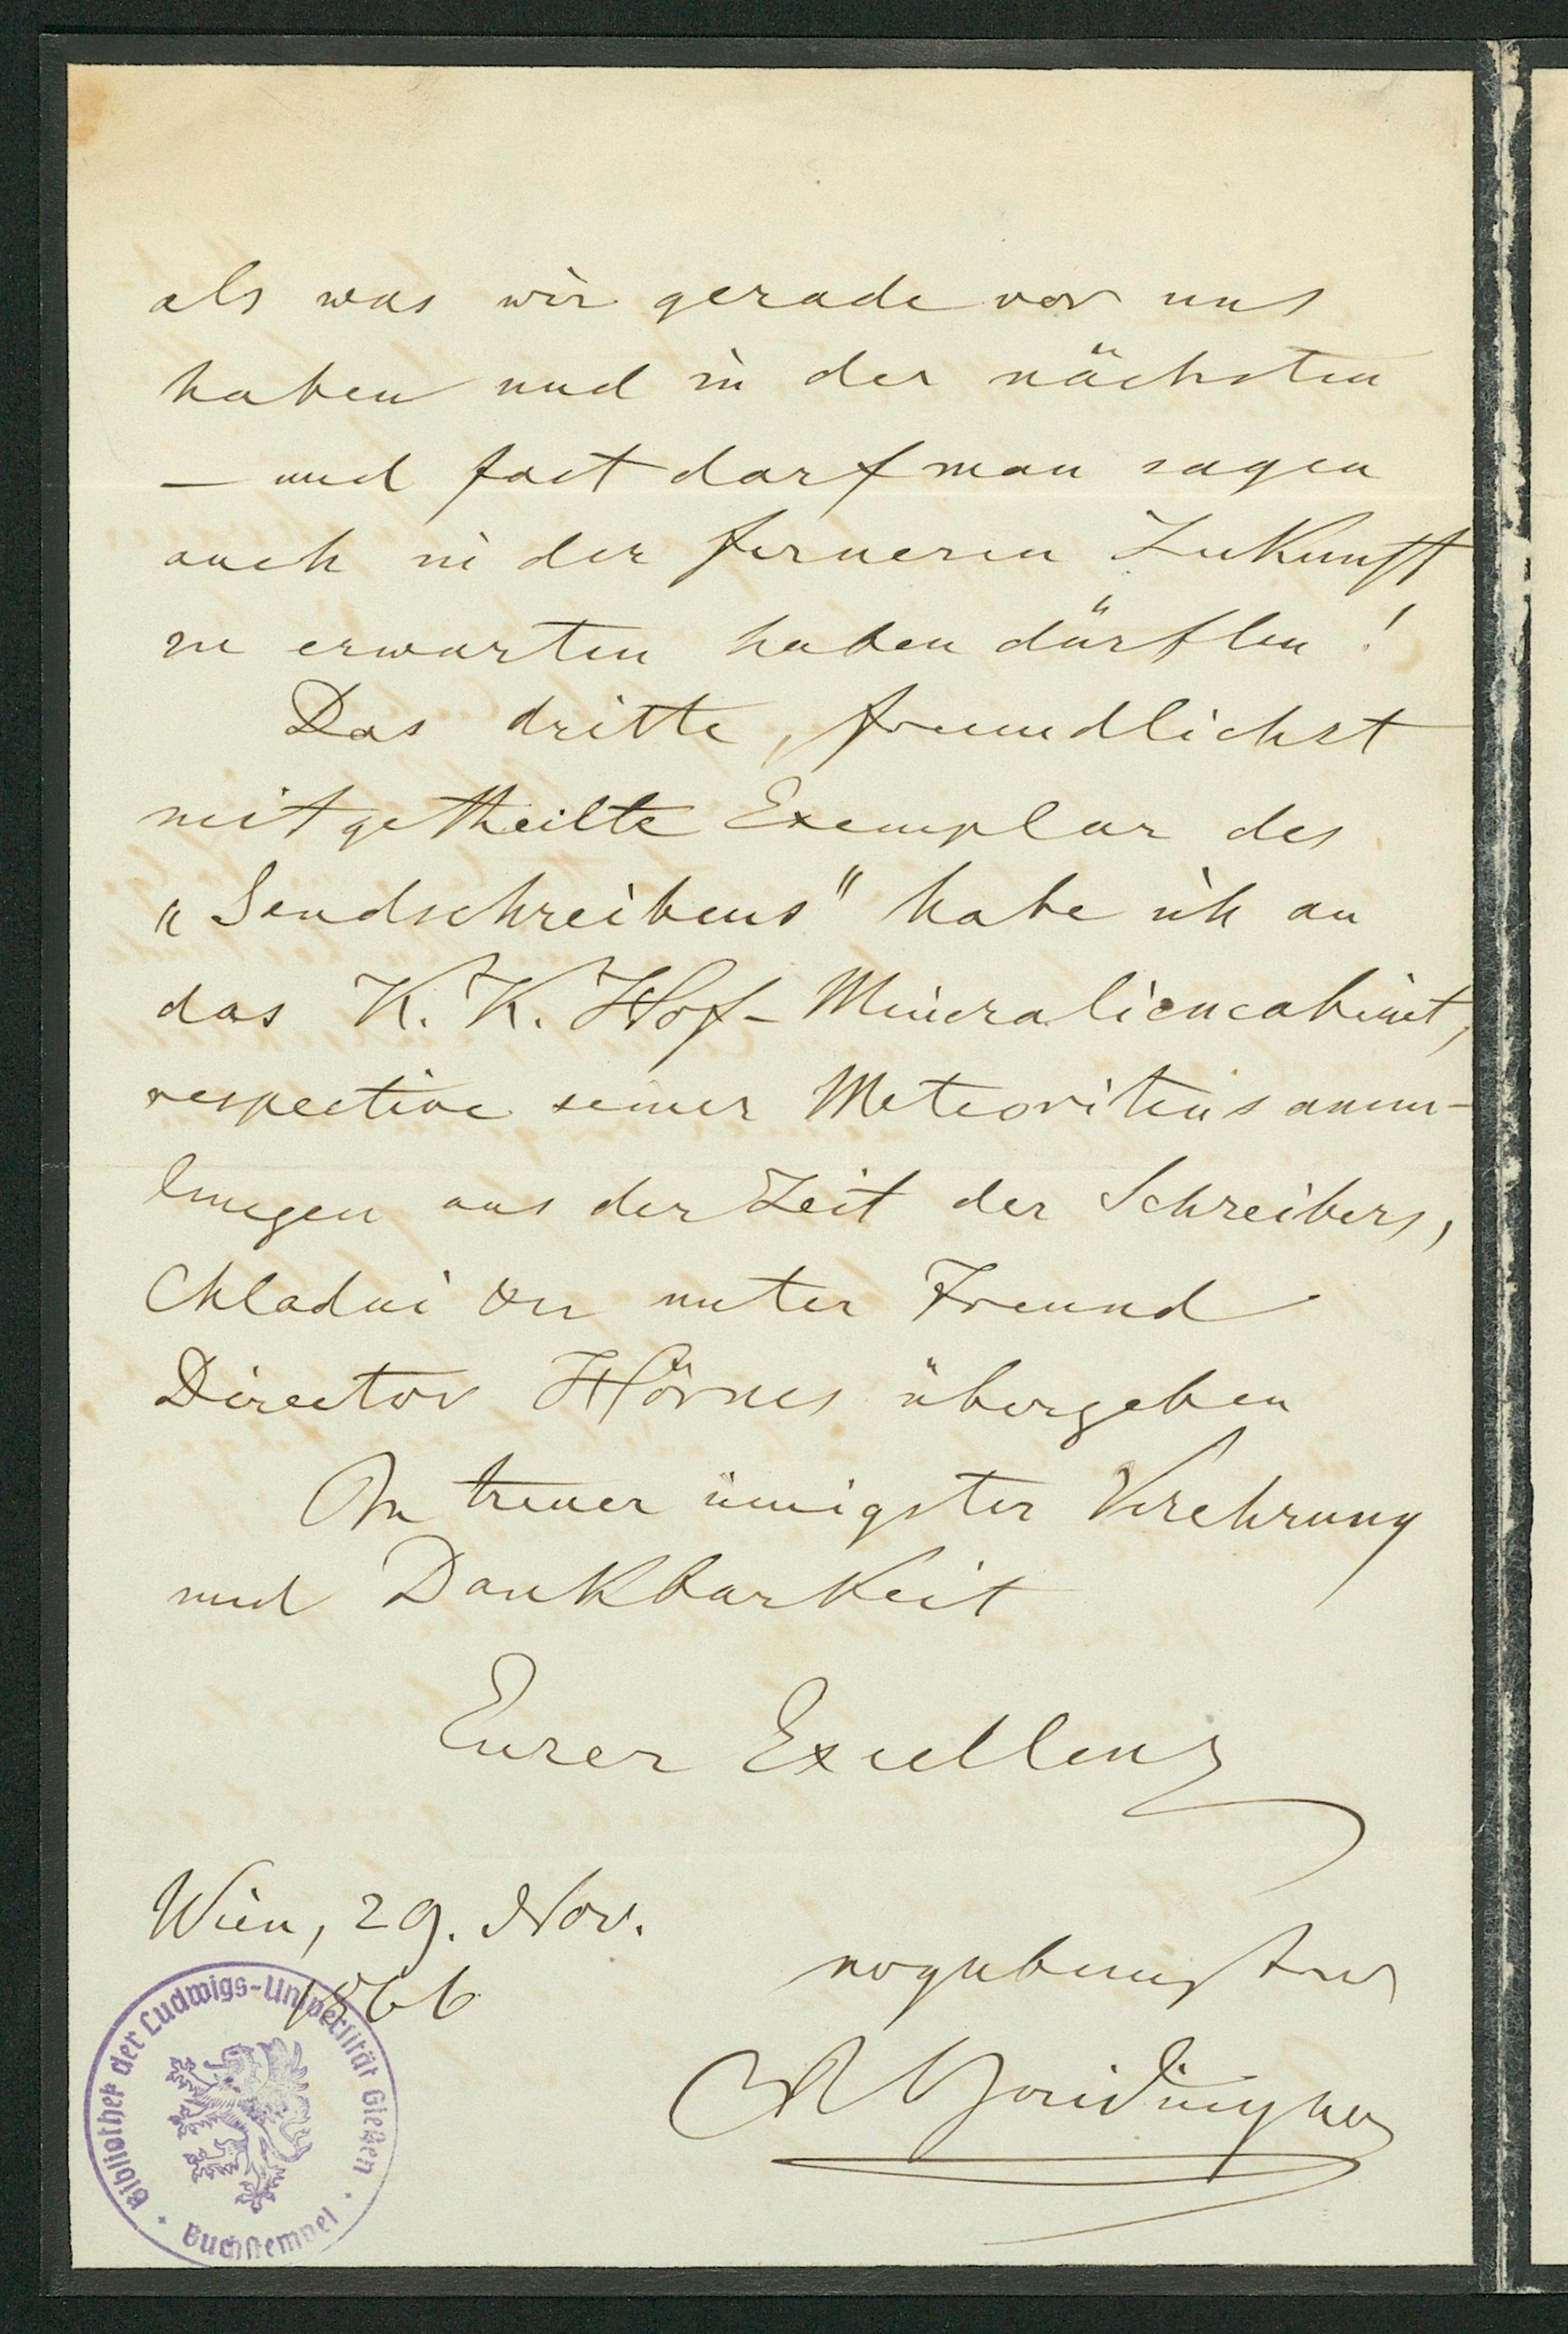 als was wir gerade vor uns
haben und in der nächsten
— und fast darf man sagen
auch in der ferneren Zukunft
zu erwarten haben dürften!
Das dritte, freundlichst
mitgetheilte Exemplar des
„Sendschreibens" habe ich an
das K. K. Hof-Mineraliencabinet,
respective seiner Meteoritensamm-
lungen aus der Zeit der Schreibers,
Chladni &c unter Freund
Director Hörnes übergeben
In treuer innigster Verehrung
und Dankbarkeit
Eurer Excellenz
Wien, 29. Nov.
1866
ergebenster
W Haidinger
Bibliothek der Ludwigs-Universität Gießen
Buchstempel